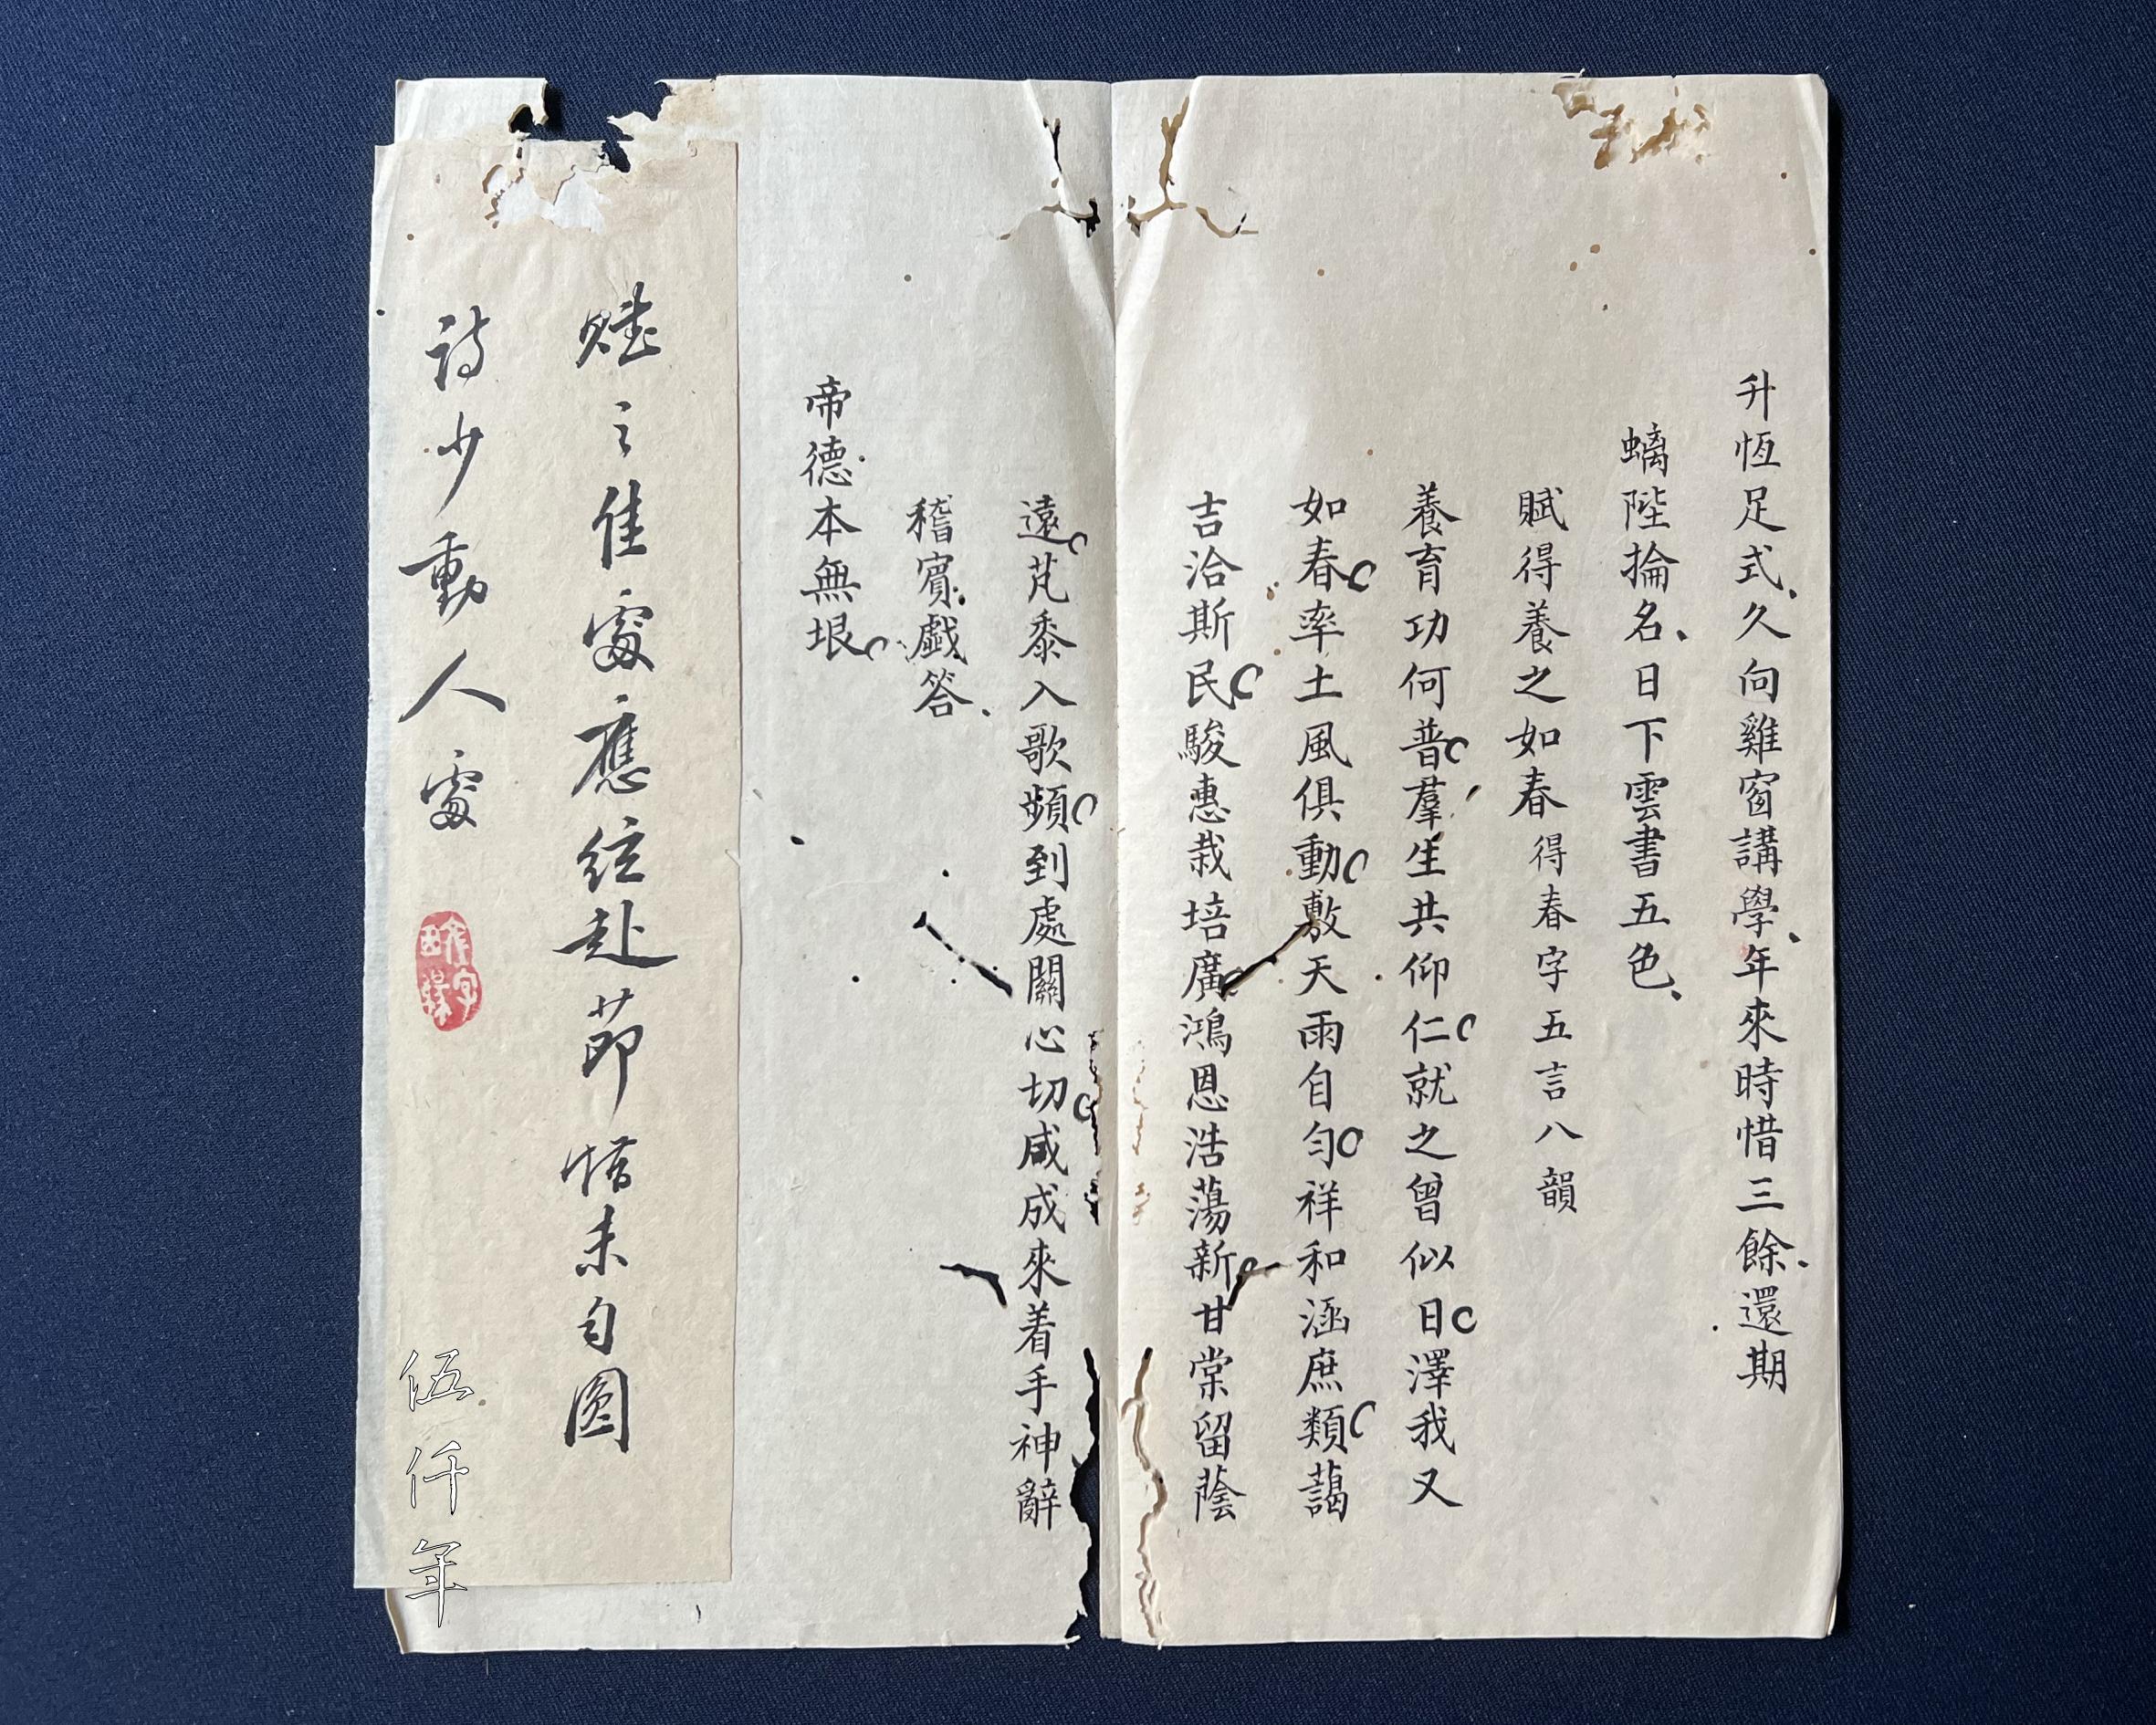 升恆足式久向雞窗講學年來時惜三餘還期
螭陛掄名日下雲書五色
賦得養之如春得春字五言八韻
養育功何普羣生共仰仁就之曾似日澤我又
如春率土風俱動敷天雨自勻祥和涵庶類藹
吉洽斯民駿惠栽培廣鴻恩浩蕩新甘棠留蔭
遠芃黍入歌頻到處關心切咸成來着手神辭
稽賓戲答
帝德本無垠
賦之佳處應絃赴節惜未勻圓
詩少動人處
伍仟年